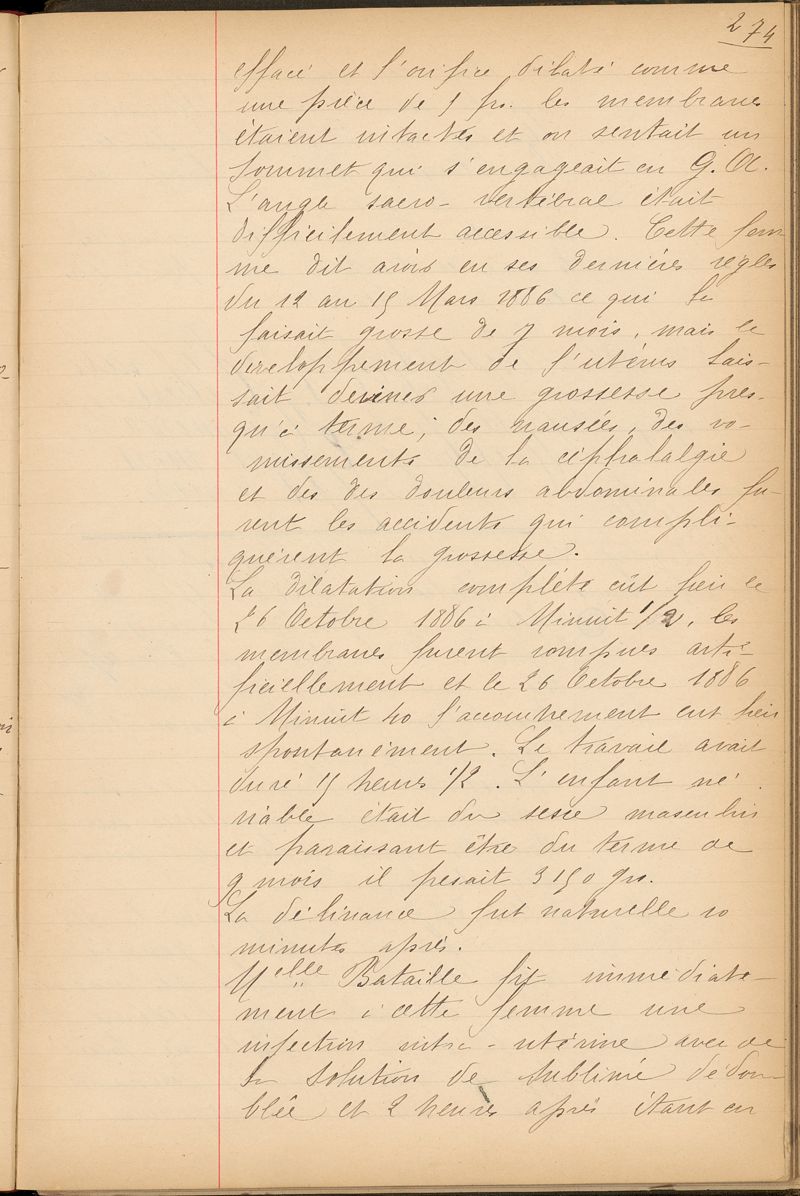 274
effacé et l'orifice dilaté comme
une pièce de 5 frs. les membranes
étaient intactes et on sentait un
sommet qui s'engageait en G. A.
L'angle sacro-vertébral était
difficilement accessible. Cette fem-
me dit avoir eu ses dernières règles
du 12 au 15 Mars 1886 ce qui la
faisait grosse de 7 mois, mais le
developpement de l'utérus lais-
sait deviner une grossesse pres-
qu'à terme; des nausées, des vo-
missements de la céphalalgie
et des des douleurs abdominales fu-
rent les accidents qui compli-
quèrent la grossesse.
La dilatation complète eût lieu le
26 Octobre 1886 à Minuit 1/2, les
membranes furent rompues arti-
ficiellement et le 26 Octobre 1886
à Minuit 40 l'accouchement eut lieu
spontanément. Le travail avait
duré 15 heures 1/2. L'enfant né
viable était du sexe masculin
et paraissant être du terme de
9 mois il pesait 3150 grs.
La délivrance fut naturelle 10
minutes après.
Melle Bataille fit immédiate-
ment à cette femme une
injection intra-utérine avec de
la solution de sublimé dédou-
blée et 2 heures après étant en